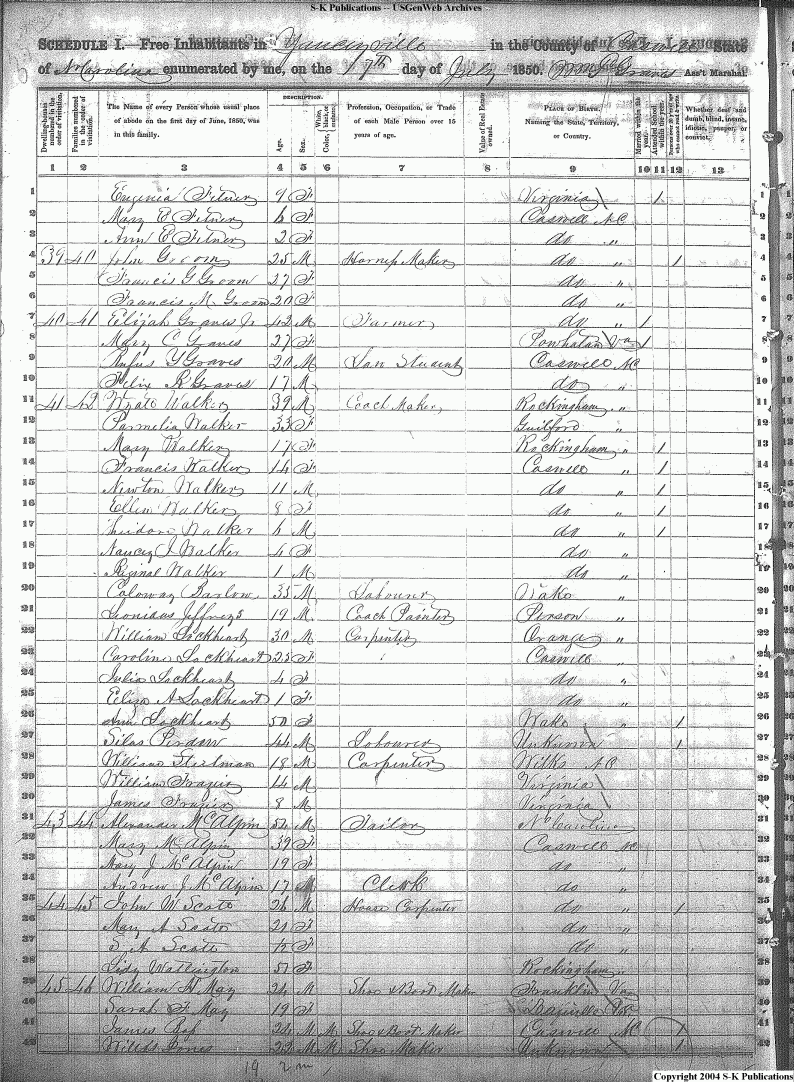 S-K Publications -- USGenWeb Archives
SCHEDULE I.—Free Inhabitants in Yanceyville in the County of Caswell State
of N. Carolina enumerated by me, on the 17th day of July 1850. Graves Ass't Marshal.
Dwelling-houses numbered in the order of visitation.
Families numbered in the order of visitation.
The Name of every Person whose usual place of abode on the first day of June, 1850, was in this family.
DESCRIPTION.
Age.
Sex.
Color, White, black, or mulatto.
Profession, Occupation, or Trade of each Male Person over 15 years of age.
Value of Real Estate owned.
PLACE OF BIRTH. Naming the State, Territory, or Country.
Married within the year.
Attended School within the year.
Whether deaf and dumb, blind, insane, idiotic, pauper, or convict.
1 2 3 4 5 6 7 8 9 10 11 12 13
1 Eugenia 9 F Virginia 1 1
2 Mary E 6 F Caswell NC 2
3 Ann E 2 F do " 3
4 39 40 John Groom 25 M Harness Maker do " 1 4
5 Francis G Groom 27 F do " 5
6 Francis M. Groom 20 F do " 6
7 40 41 Elijah Graves Jr 42 M Farmer do " 1 7
8 Mary C Graves 27 F Powhatan Va 1 8
9 Rufus Y Graves 20 M Law Student Caswell NC 9
10 Felix R Graves 17 M do " 10
11 41 42 Walker 39 M Coach Maker Rockingham " 11
12 Parmelia Walker 33 F Guilford " 12
13 Mary Walker 17 F Rockingham " 1 13
14 Francis Walker 14 F Caswell " 1 14
15 Newton Walker 11 M do " 1 15
16 Ellen Walker 8 F do " 1 16
17 Walker 6 M do " 1 17
18 Nancy J Walker 4 F do " 18
19 Reginal Walker 1 M do " 19
20 Caloway Barlow 35 M Labourer Wake " 20
21 Leonidas Jeffreys 19 M Coach Painter Person " 21
22 William Lockheart 30 M Carpenter Orange " 22
23 Caroline Lockheart 25 F Caswell " 23
24 Julia Lockheart 4 F do " 24
25 Eliza A Lockheart 1 F do " 25
26 Ann Lockheart 50 F Wake " 1 26
27 Silas Perdew 44 M Labourer Unknown 1 27
28 William Steelman 18 M Carpenter Wilks NC 28
29 William Frazier 14 M Virginia 29
30 James Frazier 8 M Virginia 30
31 43 44 Alexander McAlpin 54 M Tailor N Carolina 31
32 Mary McAlpin 39 F Caswell NC 32
33 Mary J McAlpin 19 F do " 33
34 Andrew J McAlpin 17 M Clerk do " 34
35 44 45 John W Scate 26 M House Carpenter do " 1 35
36 Mary A Scate 21 F do " 36
37 S A Scate F do " 37
38 Watlington 51 F Rockingham " 38
39 45 46 William H May 24 M Shoe & Boot Maker Franklin Va 39
40 Sarah F May 19 F Danville Va 40
41 James 24 M M Shoe & Boot Maker Caswell NC 1 41
42 Jones 22 M M Shoe Maker Unknown 1 42
19 2 m
Copyright 2004 S-K Publications